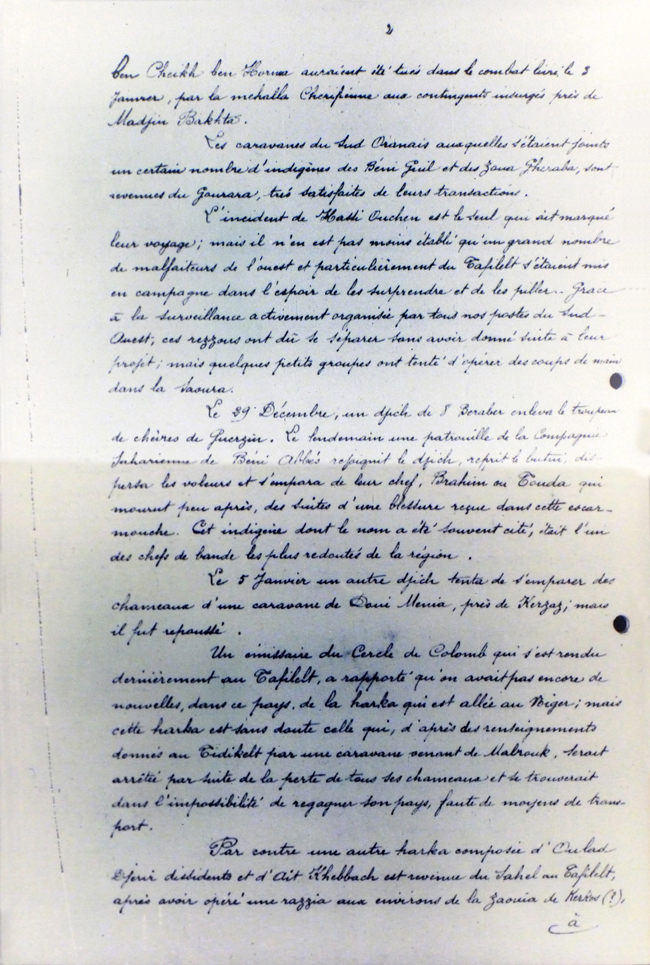 2
ben Cheikh ben Horma auraient été tués dans le combat livré le 3
Janvier, par la mehalla Cherifienne aux contingents insurgés près de
Madjin Bakhta.
Les caravanes du Sud Oranais auxquelles s'étaient joints
un certain nombre d'indigènes des Béni Guil et des Zoua Gheraba, sont
revenues du Gourara, très satisfaites de leurs transactions.
L'incident de Hassi Ouchen est le seul qui ait marqué
leur voyage; mais il n'en est pas moins établi qu'un grand nombre
de malfaiteurs de l'ouest et particulièrement du Tafilelt s'étaient mis
en campagne dans l'espoir de les surprendre et de les piller. Grace
à la surveillance activement organisée par tous nos postes du Sud-
Ouest, ces rezzous ont dû se séparer sans avoir donné suite à leur
projet; mais quelques petits groupes ont tenté d'opérer des coups de main
dans la Saoura.
Le 29 Décembre, un djich de 8 Beraber enleva le troupeau
de chèvres de Guerzin. Le lendemain une patrouille de la Compagnie
Saharienne de Béni Abbés rejoignit le djich, reprit le butin, dis-
persa les voleurs et s'empara de leur chef, Brahim ou Touda qui
mourut peu après, des suites d'une blessure reçue dans cette escar-
mouche. Cet indigène dont le nom a été souvent cité, était l'un
des chefs de bande les plus redoutés de la région.
Le 5 Janvier un autre djich tenta de s'emparer des
chameaux d'une caravane de Doui Menia, près de Kerzaz; mais
il fut repoussé.
Un émissaire du Cercle de Colomb qui s'est rendu
dernièrement au Tafilelt, a rapporté qu'on avait pas encore de
nouvelles, dans ce pays, de la harka qui est allée au Niger; mais
cette harka est sans doute celle qui, d'après des renseignements
donnés au Tidikelt par une caravane venant de Mabrouk, serait
arrêtée par suite de la perte de tous ses chameaux et se trouverait
dans l'impossibilité de regagner son pays, faute de moyens de trans-
port.
Par contre une autre harka composée d'Oulad
Djerir dissidents et d'Aït Khebbach est revenue du Sahel au Tafilelt,
après avoir opéré une razzia aux environs de la Zaouia de Kerkos (?),
à